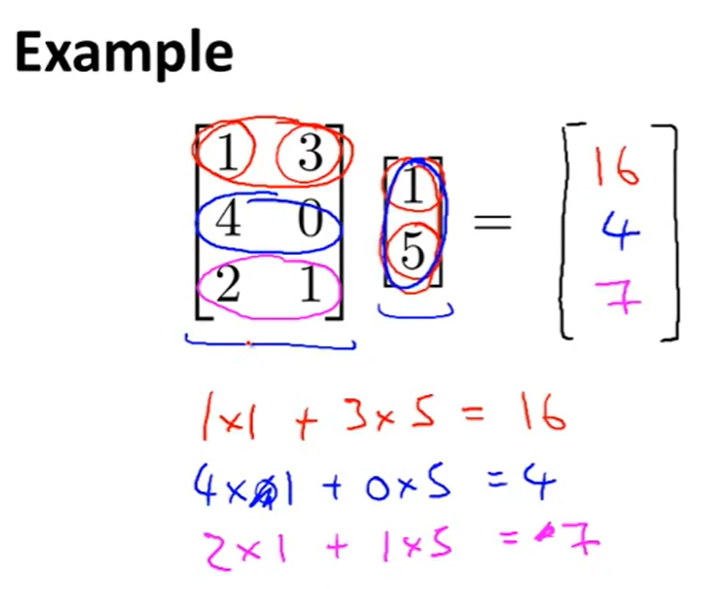 Example
1 3
4 0
2 1
1
5
=
16
4
7
1x1 + 3x5 = 16
4x1 + 0x5 = 4
2x1 + 1x5 = 7